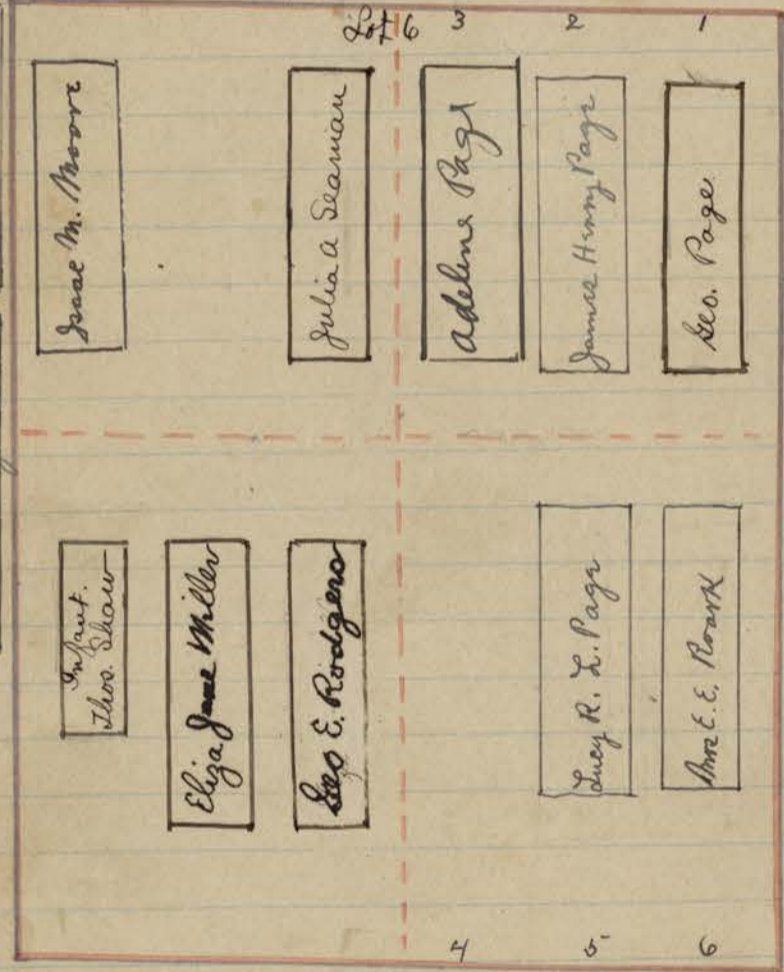 Lot 6
3
2
1
Isaac M. Moore
Julia A
Adeline Page
James Henry Page
Geo. Page
Infant.
Thos. Shaw
Eliza Jane Miller
Geo E. Rodgers
Lucy R. L. Page
E. E. Roark
4
5
6